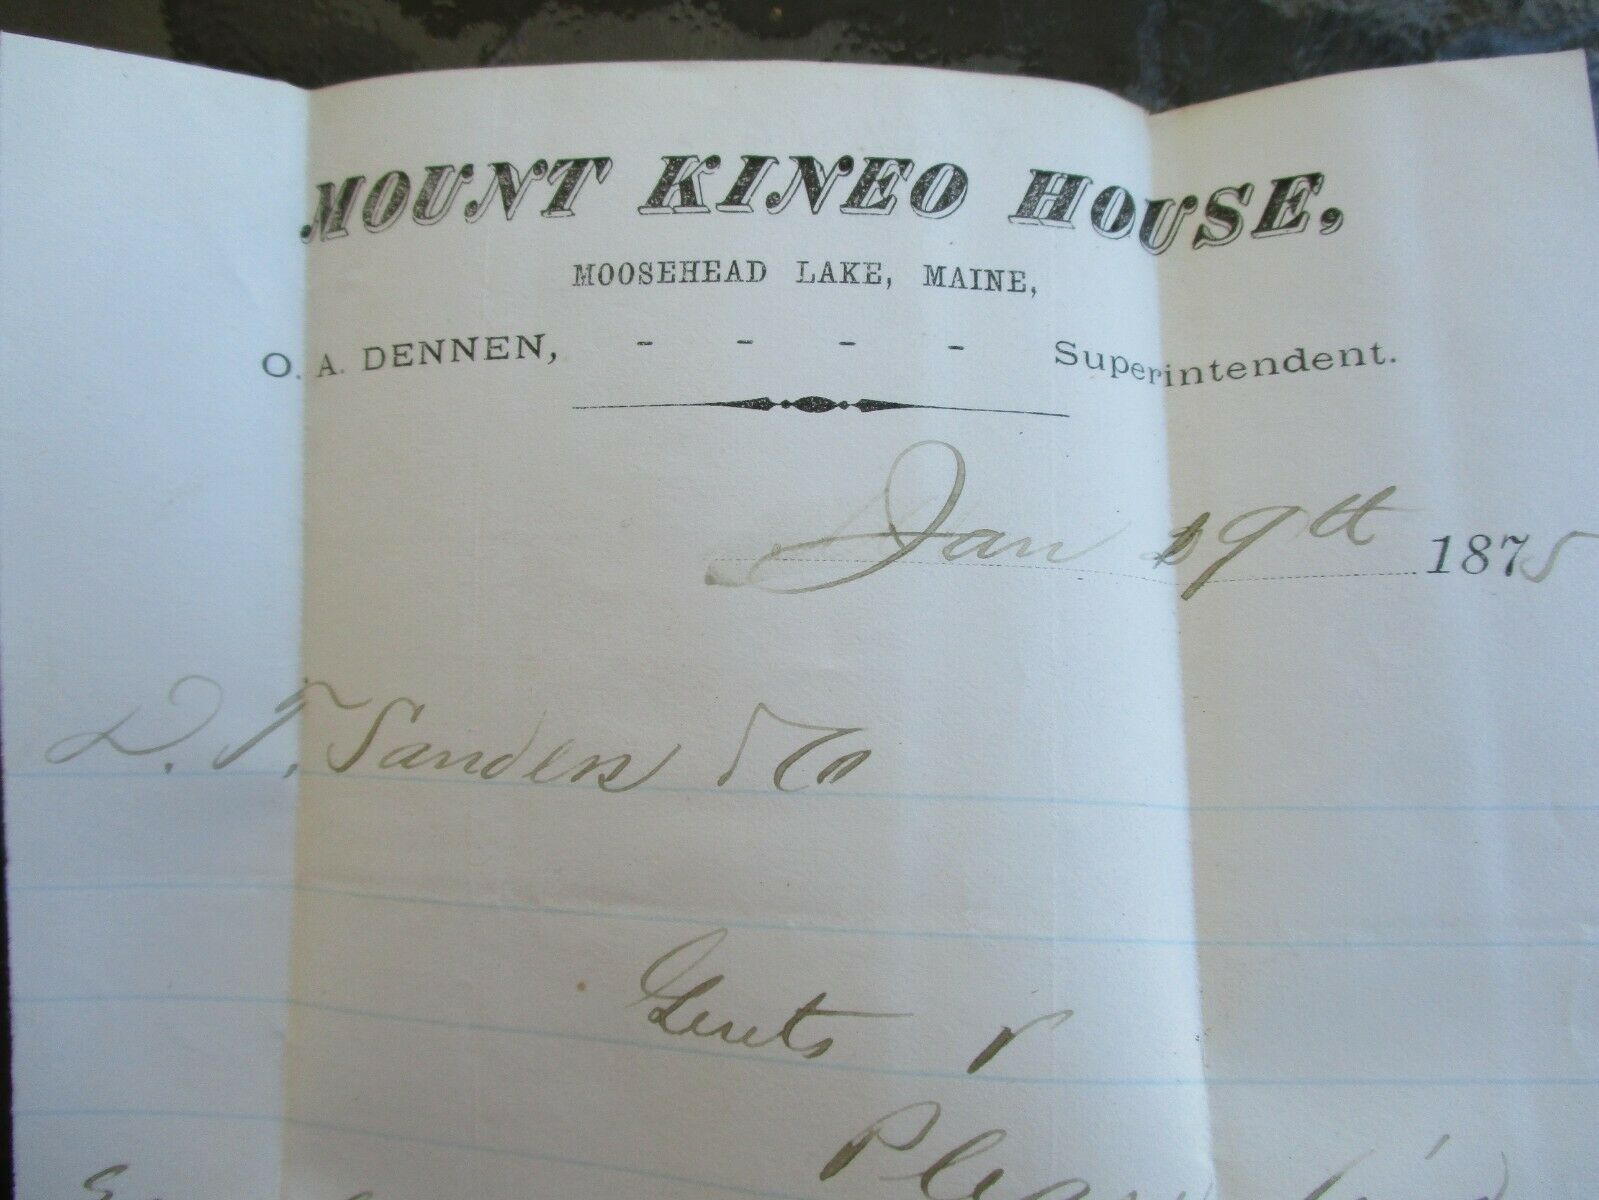 MOUNT KINEO HOUSE,
MOOSEHEAD LAKE, MAINE,
O. A. DENNEN, - - - - Superintendent.
Jan 19th 1875
D. T. Sanders & Co
Gents
Please